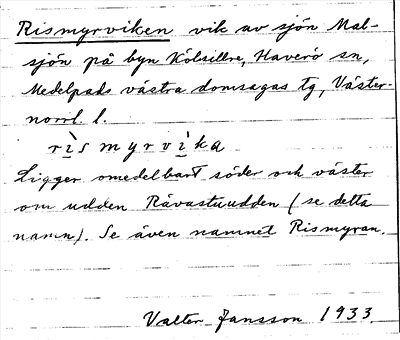 Rismyrviken vik av sjön Mal-
sjön på byn Kölsillre, Haverö sn,
Medelpads västra domsagas tg, Väster-
norrl. l.
rìsmyrvìka
Ligger omedelbart söder och väster
om udden Rävastuudden (se detta
namn). Se även namnet Rismyran.
Valter Jansson 1933.